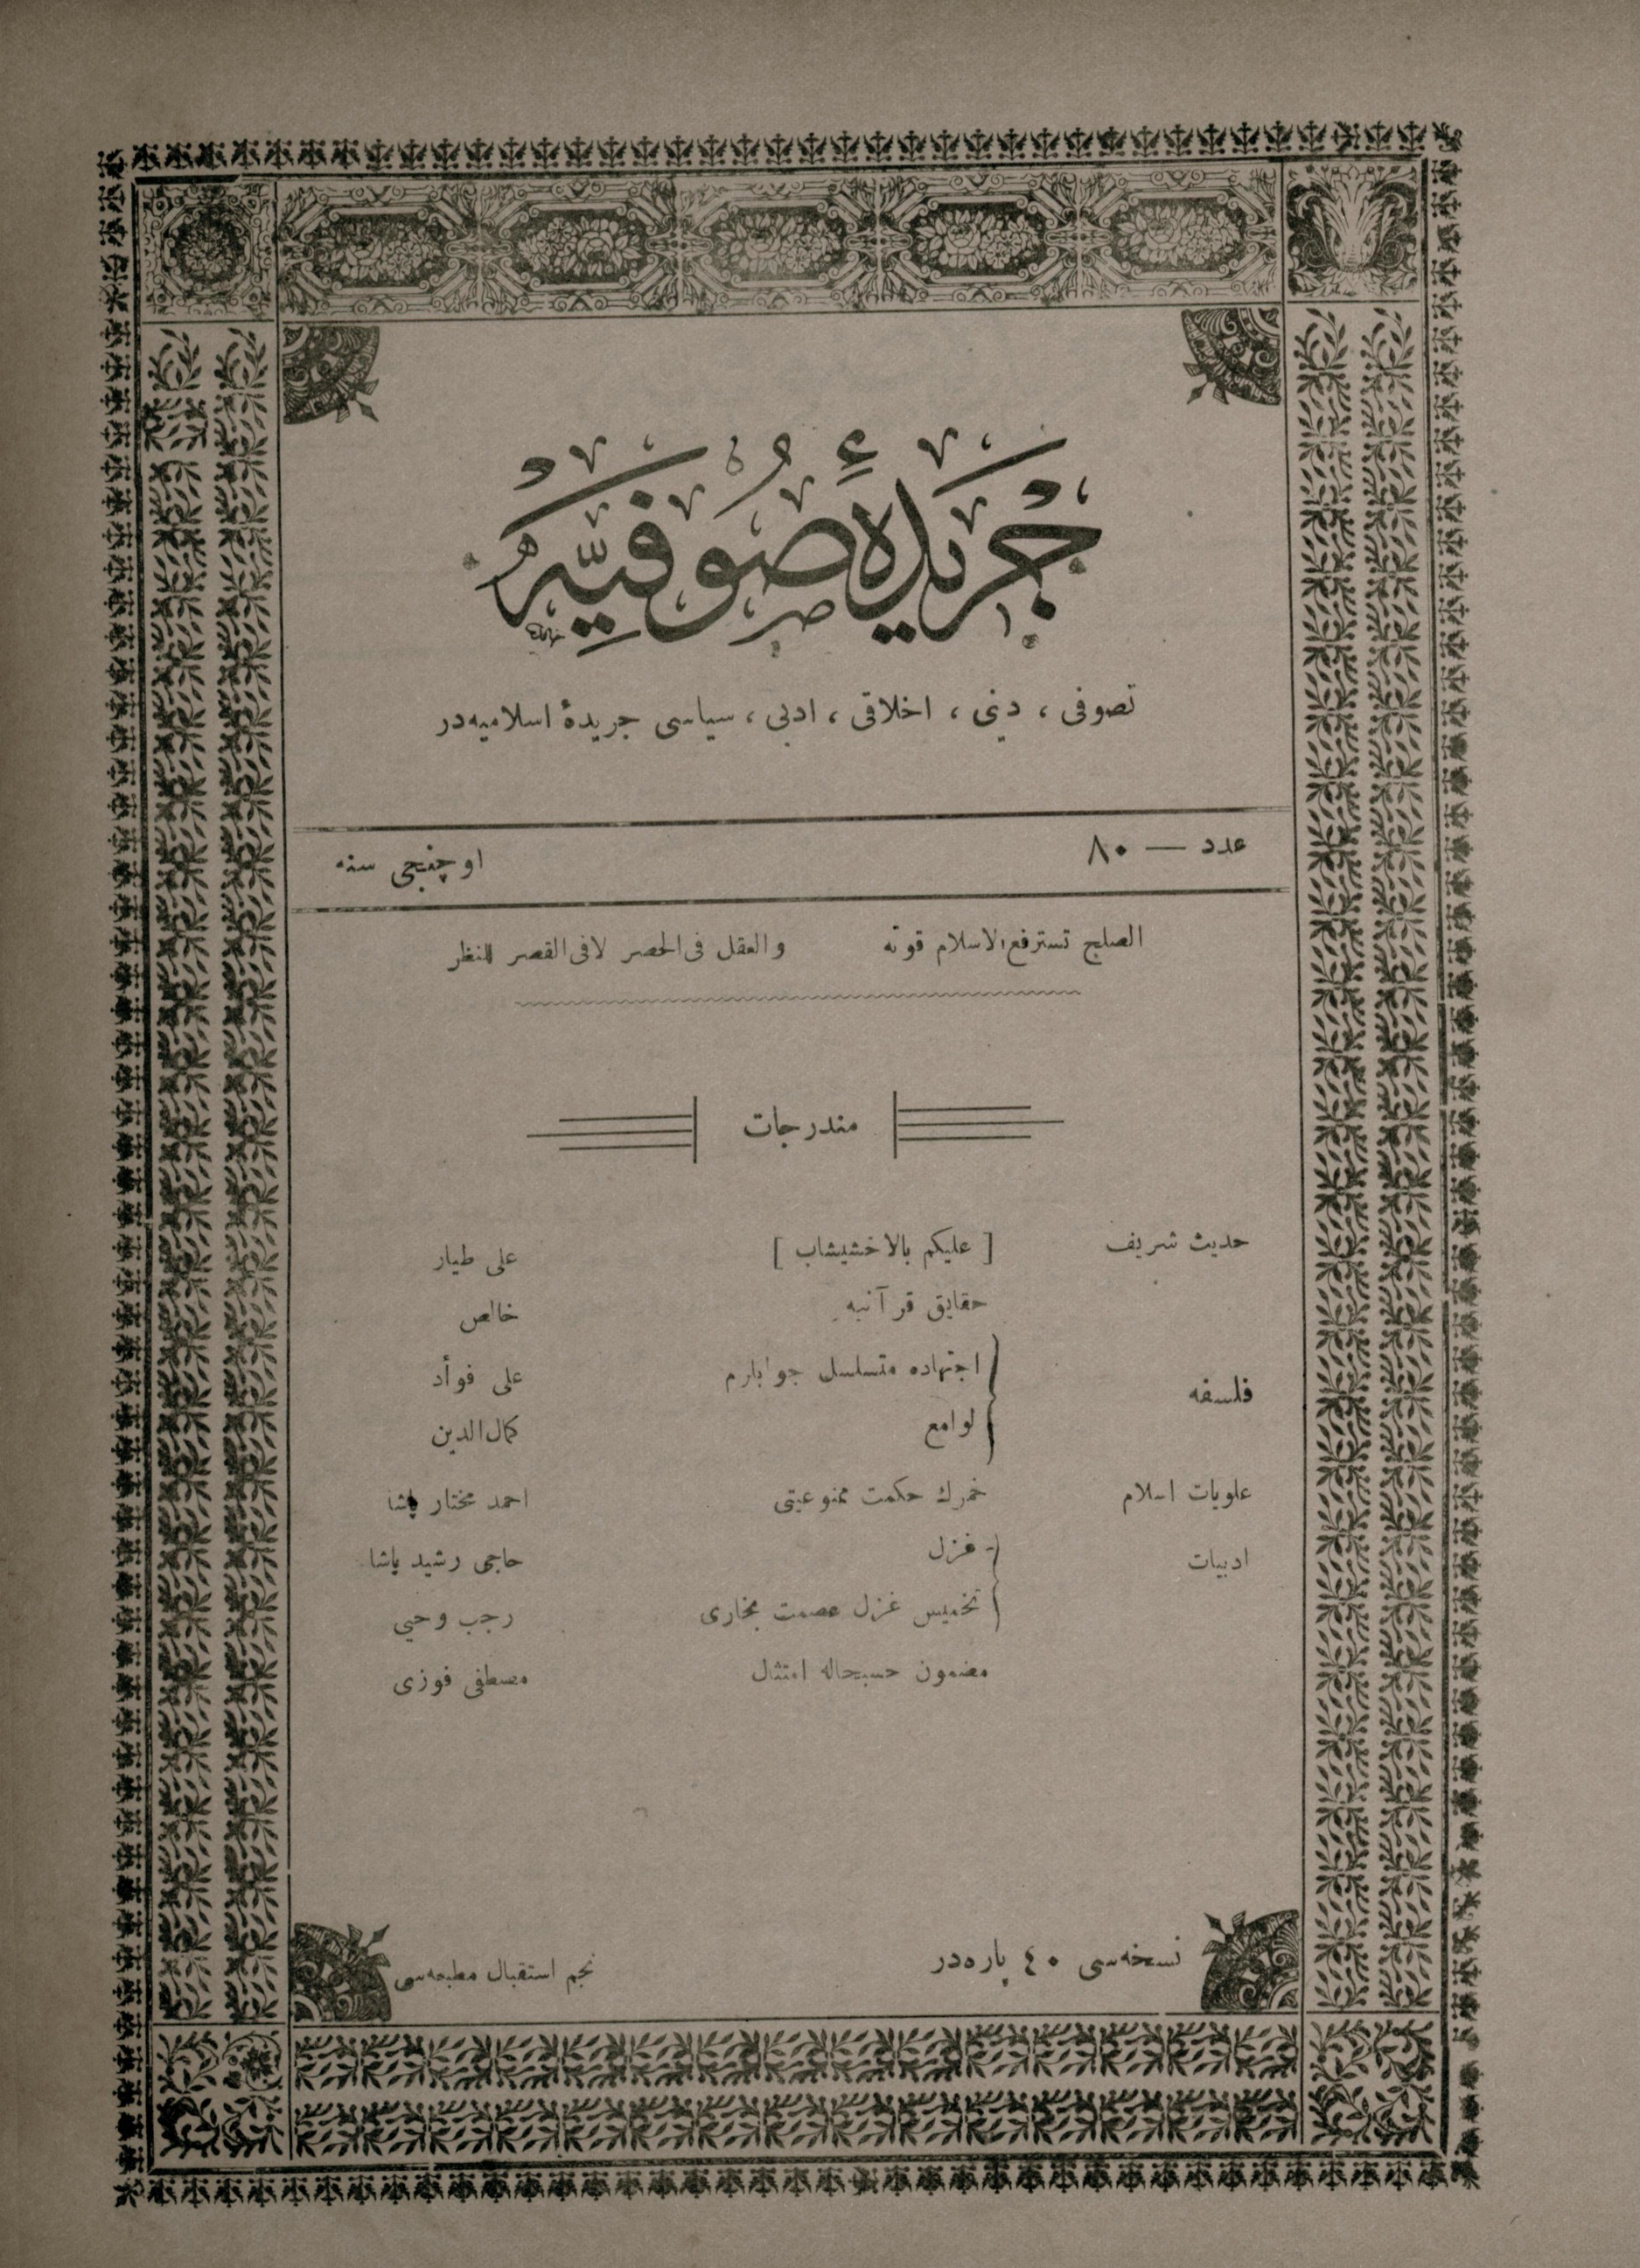 جَرِيدَهٔ صُوفِيَّه
تصوفی ، دینی ، اخلاقی ، ادبی ، سیاسی جریدهٔ اسلامیه‌در
عدد — ٨٠ اوچنجی سنه
الصلح تسترفع الاسلام قوته والعقل فی الحصر لا فی القصر للنظر
مندرجات
حدیث شریف [ علیکم بالاخشیشاب ] علی طیار
حقایق قرآنیه خالص
فلسفه
اجتهاده متسلسل جوابلرم علی فوأد
لوامع کمال‌الدین
علویات اسلام خمرك حکمت ممنوعیتی احمد مختار پاشا
ادبیات
غزل حاجی رشید پاشا
تخمیس غزل عصمت بخاری رجب وحیی
مضمون حسبحاله امتثال مصطفی فوزی
نسخه‌سی ٤٠ پاره‌در نجم استقبال مطبعه‌سی